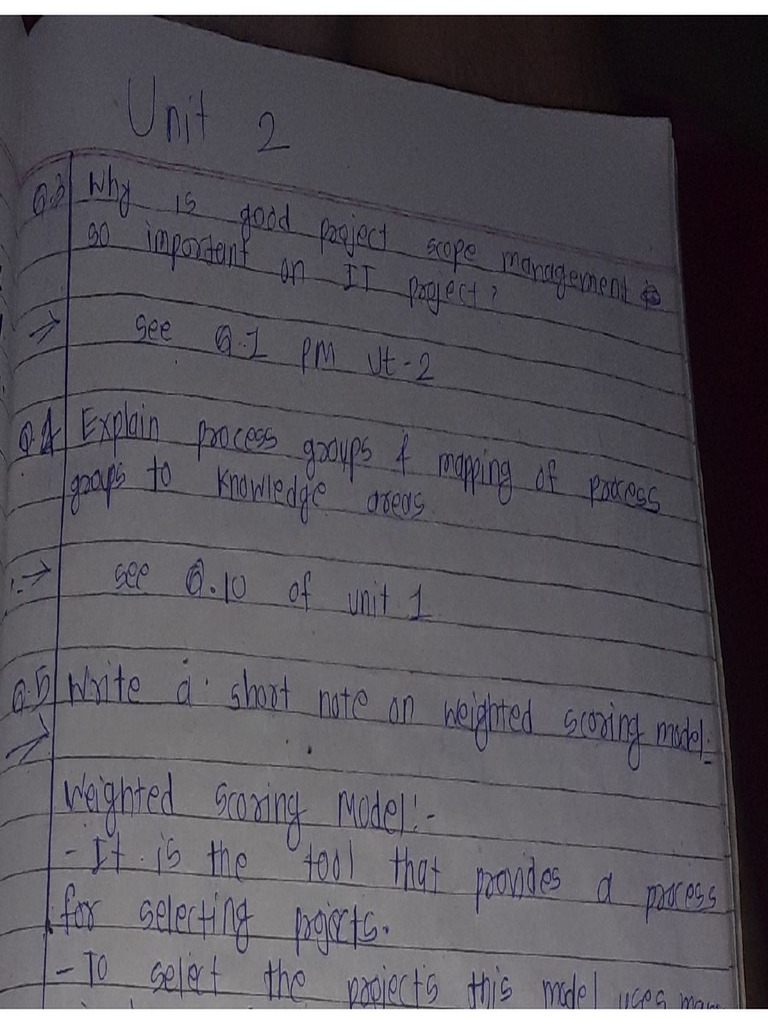 Unit 2
Q.3 Why is good project scope management
so important on IT project?
⇒ see Q.1 PM Ut-2
Q.4 Explain process groups & mapping of process
groups to knowledge areas
:→ see Q.10 of unit 1
Q.5 Write a short note on weighted scoring model:
⇒
Weighted scoring Model:-
- It is the tool that provides a process
for selecting projects.
- To select the projects this model uses many